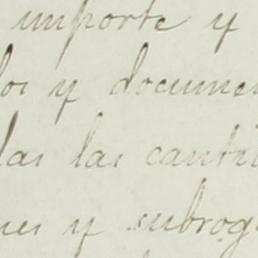 importe y
los y docume
las las canti
nes y subrog